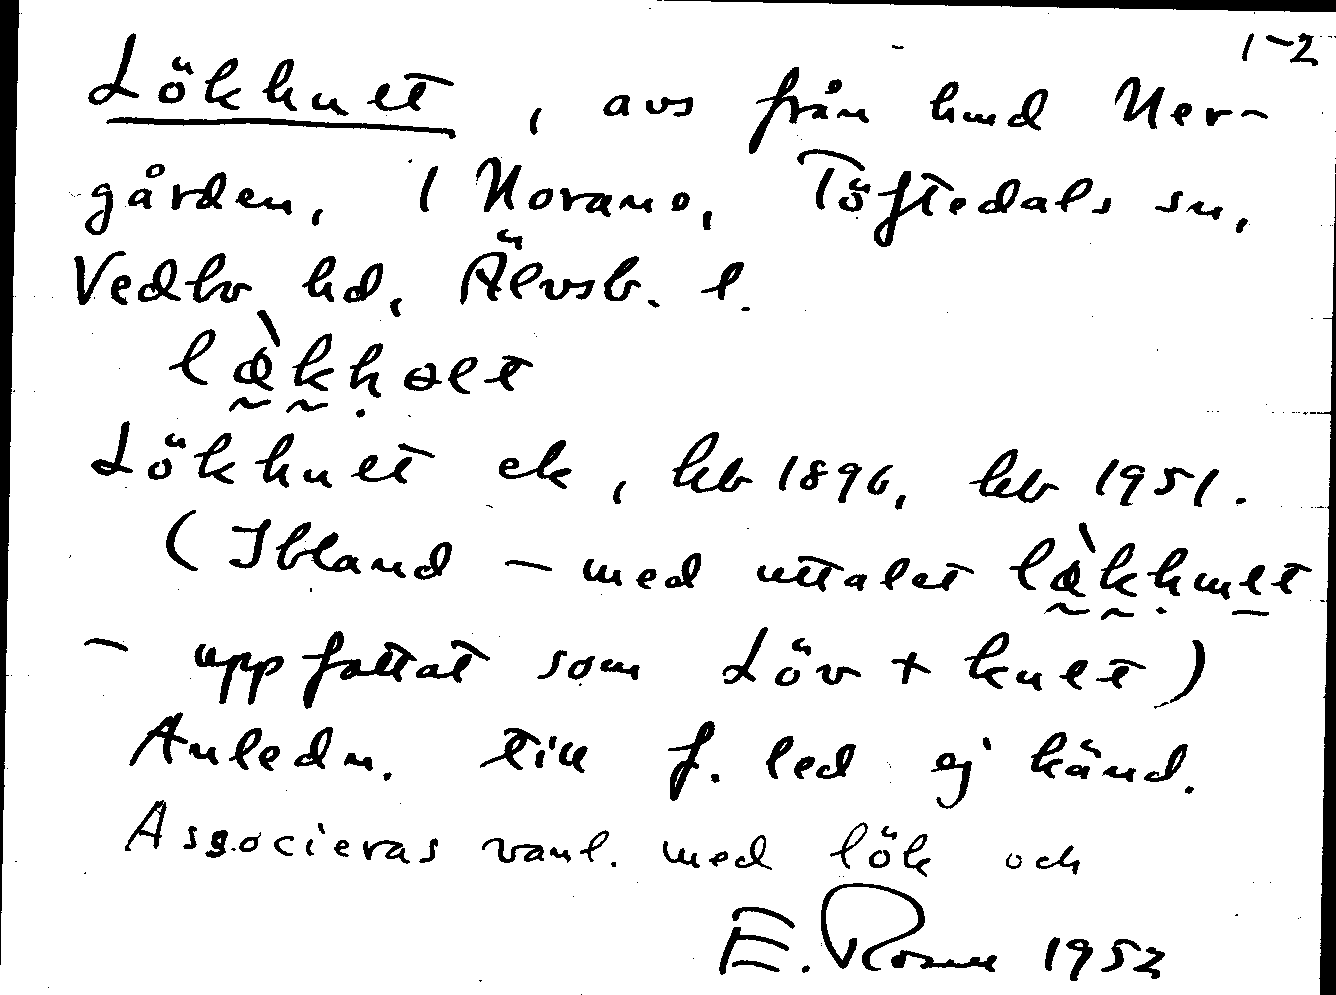 1-2
Lökhult, avs från hmd Ner-
gården, 1 Norane, Töftedals sn,
Vedbo hd, Älvsb. l.
Lökhult ek, kb 1896, kb 1951.
(Ibland – med uttalet
– uppfattat som Löv + hult)
Anledn. till f. led ej känd.
Associeras vanl. med lök och
E. Rosell 1952